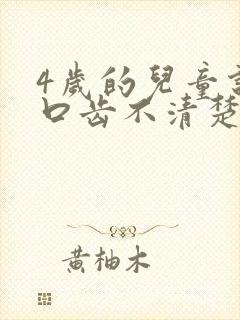 4歲的兒童說
口齿不清楚
黄柚木